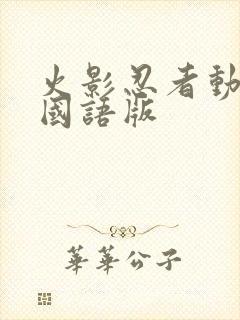 火影忍者動
國語版
華華公子